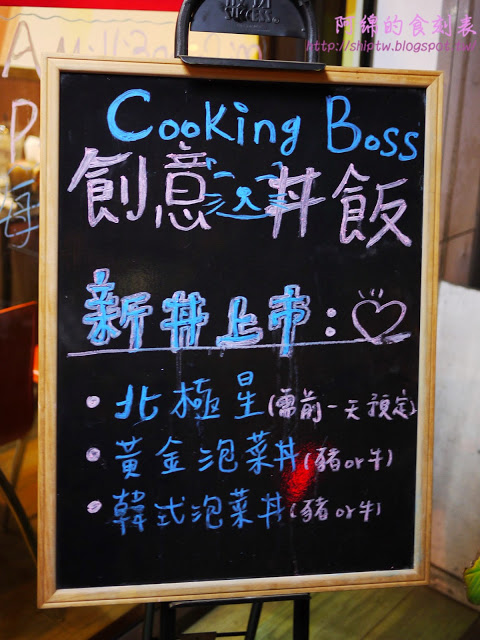 阿綿的食刻表
http://shiptw.blogspot.tw/
Cooking Boss
創意丼飯
新丼上市:
• 北極星(需前一天預定)
• 黃金泡菜丼(豬or牛)
• 韓式泡菜丼(豬or牛)